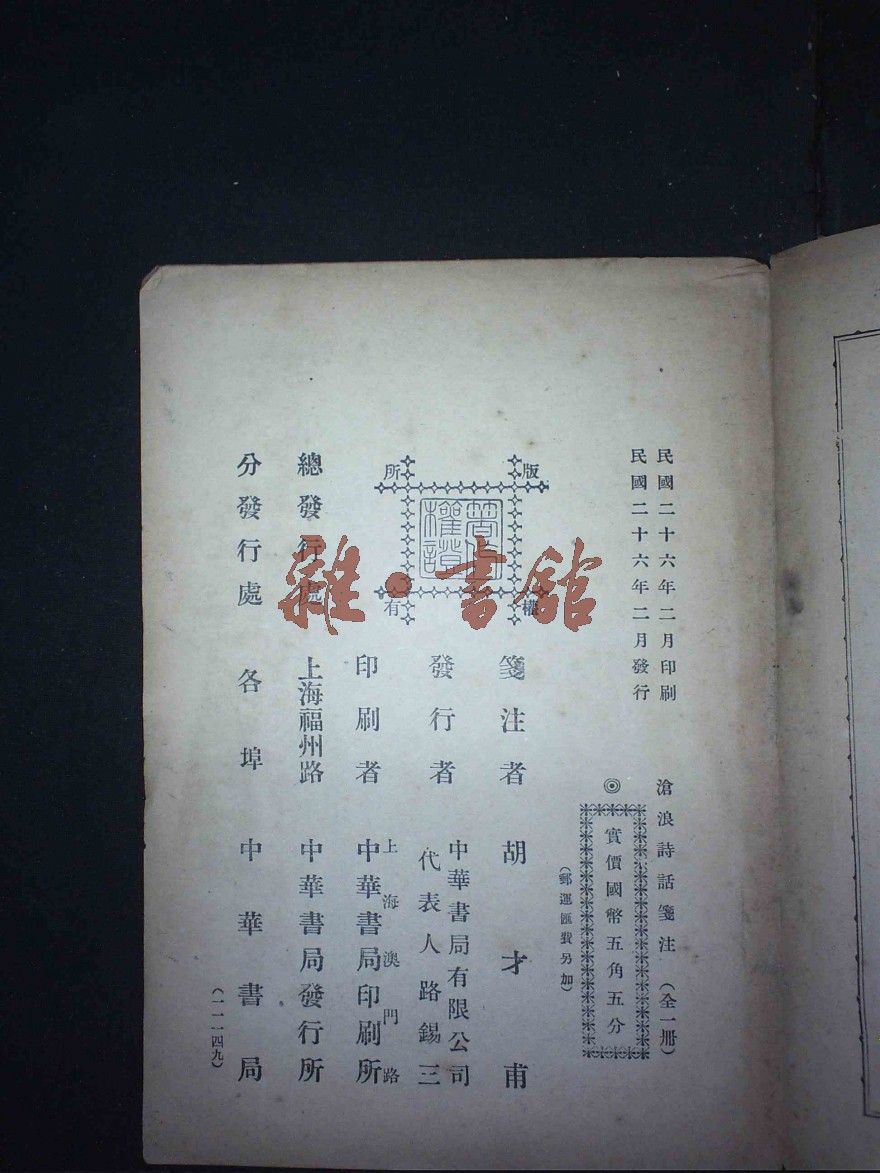 民國二十六年二月印刷
民國二十六年二月發行
滄浪詩話箋注（全一冊）
◎
實價國幣五角五分
（郵運匯費另加）
版權所有
箋注者 胡才甫
發行者 中華書局有限公司
代表人路錫三
印刷者 上海澳門路
中華書局印刷所
總發行處 上海福州路 中華書局發行所
分發行處 各埠 中華書局
（一一一四九）
雜·書館